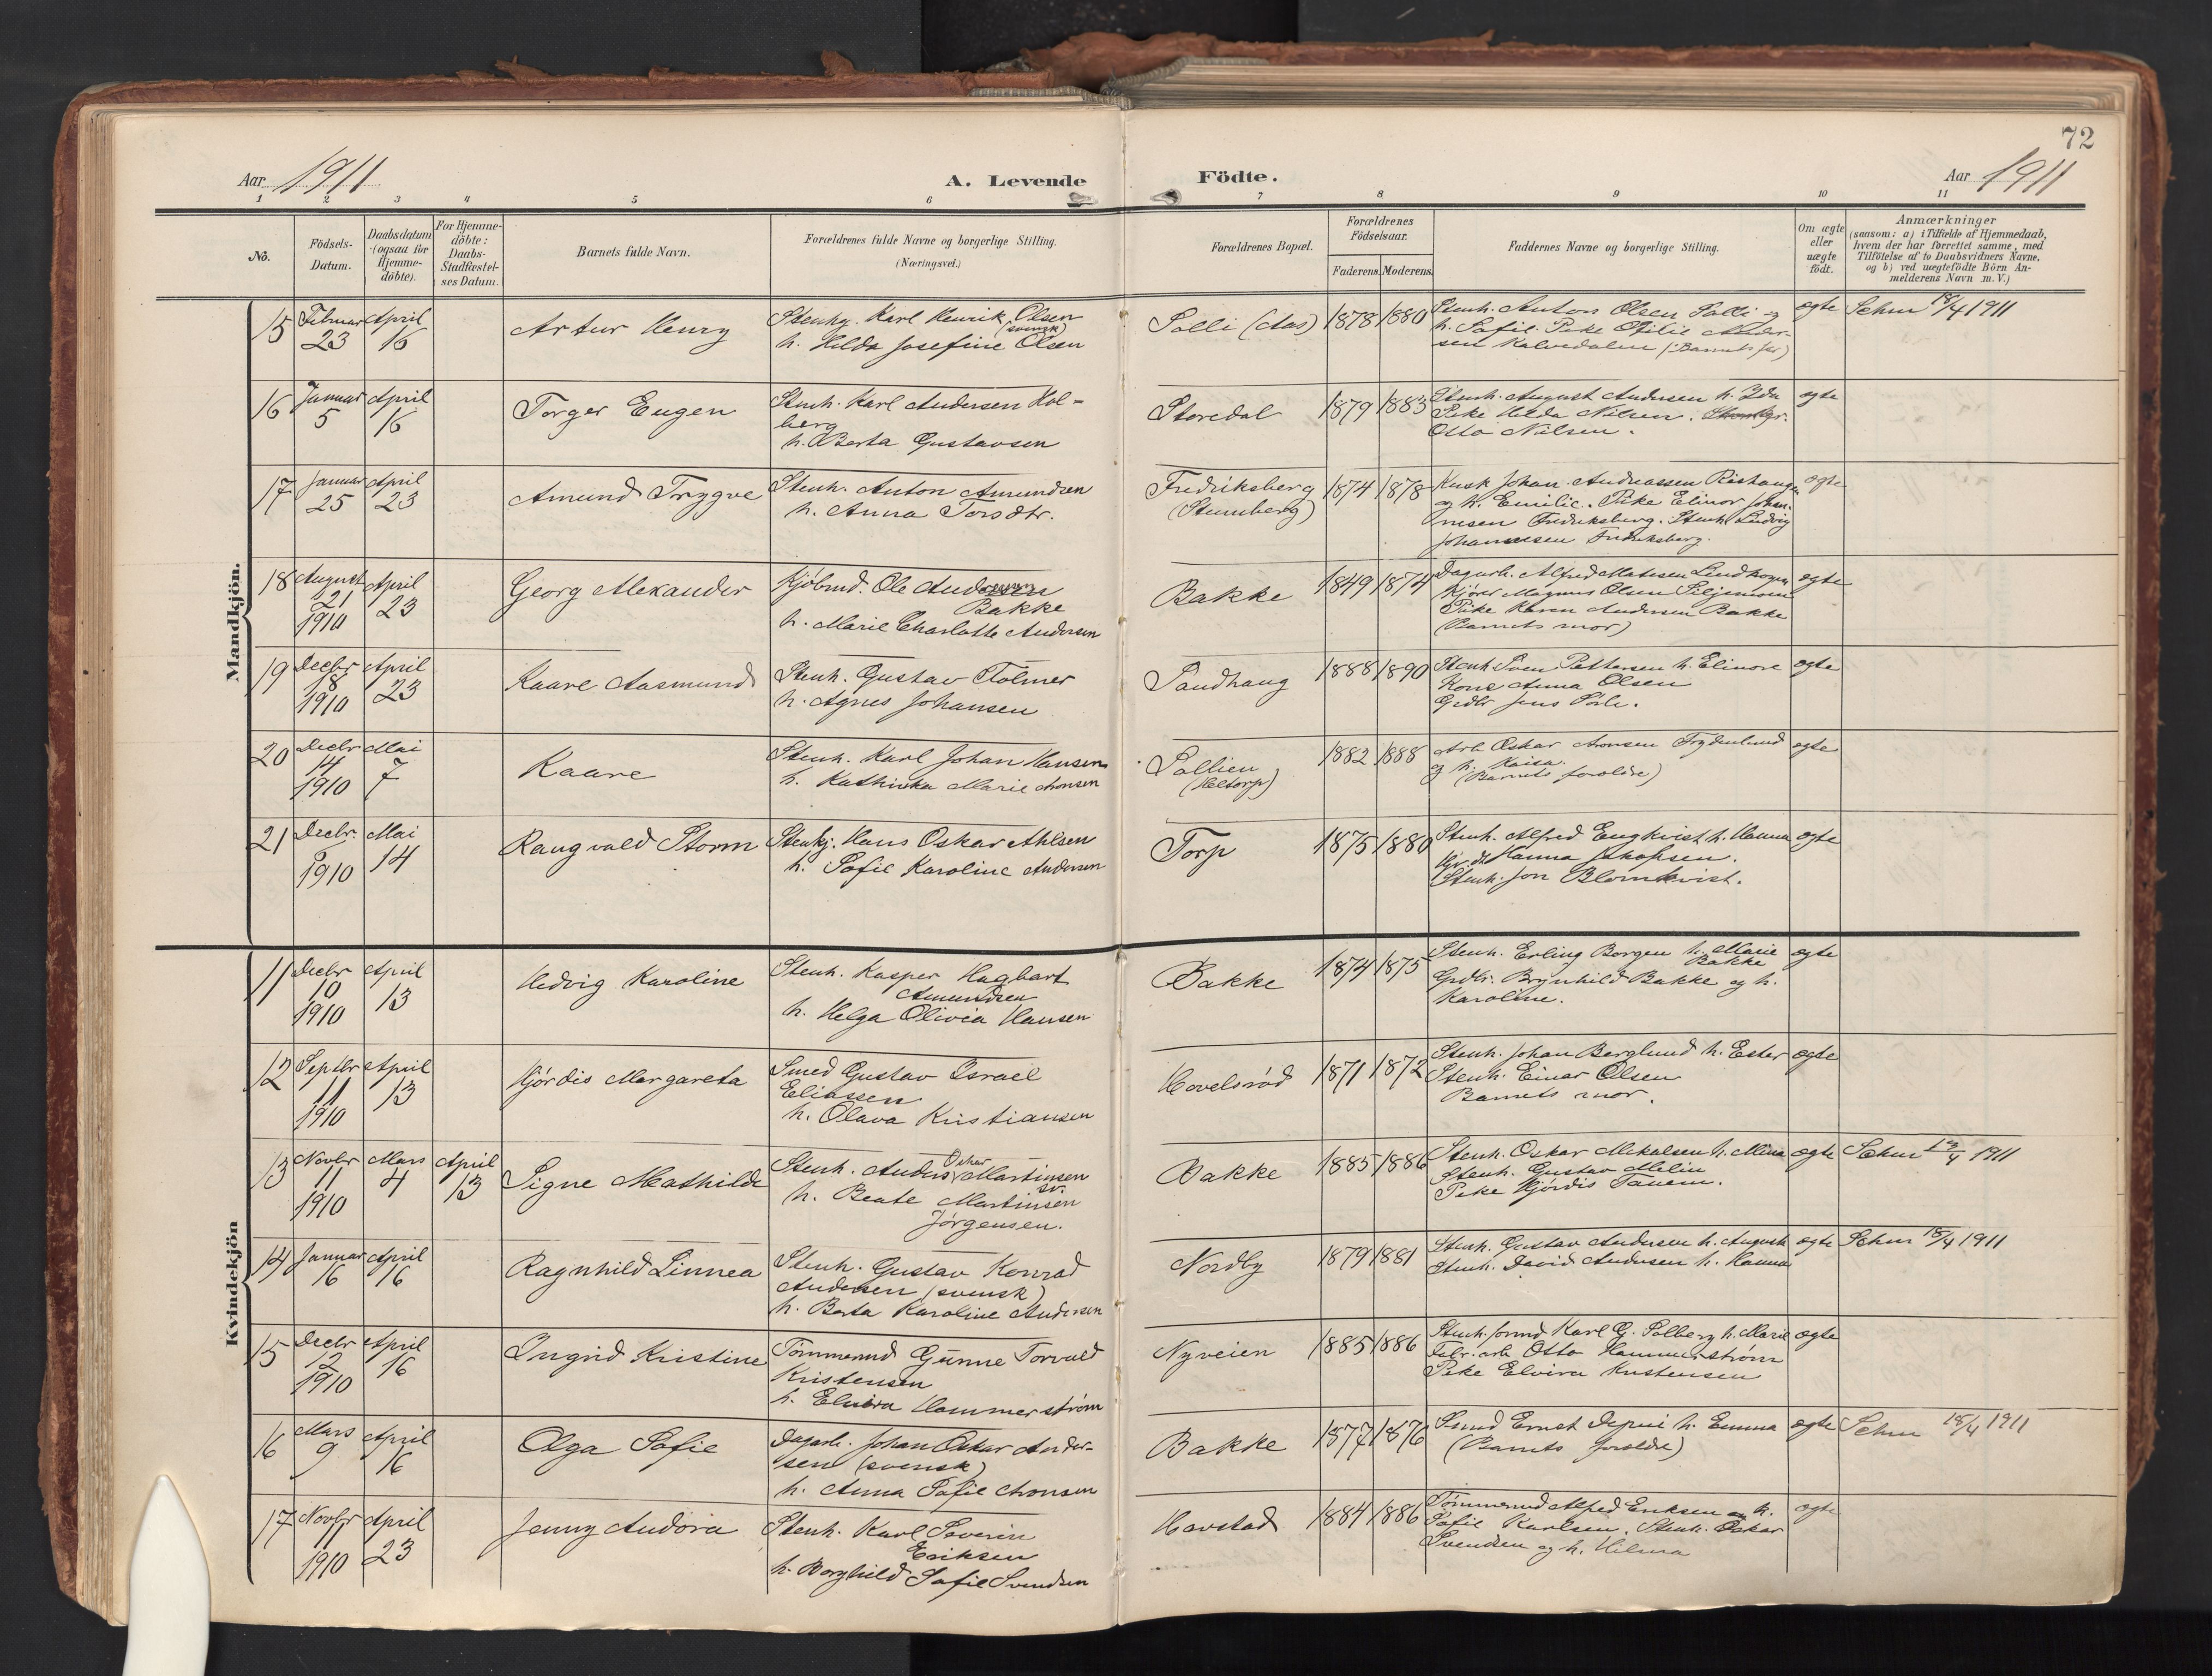 72
Aar 1911
A. Levende
Födte.
Aar 1911
1 2 3 4 5 6 7 8 9 10 11
No.
Födsels-
Datum.
Daabsdatum
(ogsaa for
Hjemme-
döbte).
For Hjemme-
döbte:
Daabs-
Stadfæstel-
ses Datum.
Barnets fulde Navn.
Forældrenes fulde Navne og borgerlige Stilling.
(Næringsvei.)
Forældrenes Bopæl.
Forældrenes
Födselsaar.
Faderens. Moderens.
Faddernes Navne og borgerlige Stilling.
Om ægte
eller
uægte
födt.
Anmærkninger
(saasom: a) i Tilfælde af Hjemmedaab,
hvem der har forrettet samme, med
Tilföielse af to Daabsvidners Navne,
og b) ved uægtefödte Börn An-
melderens Navn m.V.)
Mandkjön.
15 Februar 23 April 16
Artur Henry
Stenhg. Karl Henrik Olsen
(svensk)
h. Hilda Josefine Olsen
Solli (Aas) 1878 1880
Stenh. Anton Olsen Solli og
h. Sofie. Pike Otilie Ander-
sen Kalvedalen (Barnets far)
ægte
18/4 1911
16 Januar 5 April 16
Torger Eugen
Stenh. Karl Andersen Hol-
berg
h. Berta Gustavsen
Storedal 1879 1883
Stenh. August Andersen h. Ida
Pike Hilda Nilsen.
Otto Nilsen.
ægte
17 Januar 25 April 23
Amund Trygve
Stenh. Anton Amundsen
h. Anna Torsdtr.
Fredriksberg
(Stumberg) 1874 1878
Kusk Johan Andreassen Rishaugen
og h. Emilie. Pike Elinor Johan-
nesen Fredriksberg. Stenh. Ludvig
Johannesen Fredriksberg.
ægte
18 August 21 1910 April 23
Georg Alexander
Kjöbmd. Ole Andersen
Bakke
h. Marie Charlotte Andersen
Bakke 1849 1874
Dagarb. Alfred Matisen Lindhogen
Magnus Olsen
Pike Karen Andersen Bakke
(Barnets mor)
ægte
19 Decbr 18 1910 April 23
Kaare Aasmund
Stenh. Gustav Folmer
h. Agnes Johansen
Sandhaug 1888 1890
Stenh. Sven Pettersen h. Elinore
Kone Anna Olsen
Grdbr Jens
ægte
20 Decbr 14 1910 Mai 7
Kaare
Stenh. Karl Johan Hansen
h. Kathinka Marie Aronsen
Sollien
(Heltorp) 1882 1888
Arb Oskar Aronsen Frydenlund
og h. Kaisa.
(Barnets foreldre)
ægte
21 Decbr. 9 1910 Mai 14
Rangvald Storm
Stenhj. Hans Oskar Ahlsen
h. Sofie Karoline Andersen
Torp 1875 1880
Stenh. Alfred Engkvist h. Hanna
Hanna Jakopsen.
Stenh. Jon Blomkvist.
ægte
Kvindekjön
11 Decbr 10 1910 April 13
Hedvig Karoline
Stenh. Kasper Hagbart
Amundsen
h. Helga Olivia Hansen
Bakke 1874 1875
Stenh. Erling Borgen h. Marie
Bakke
Grdbr. Brynhild Bakke og h.
Karoline.
ægte
12 Septbr 11 1910 April 13
Hjördis Margareta
Smed Gustav Israel
Eliassen
h. Olava Kristiansen
Hovelsröd 1871 1872
Stenh. Johan Berglund h. Ester
Stenh. Einar Olsen
Barnets mor.
ægte
13 Novbr 11 1910 Mars 4 April 13
Signe Mathilde
Stenh. Anders Oskar Martinsen
sv.
h. Beate Martinsen
Jørgensen.
Bakke 1885 1886
Stenh. Oskar Mikalsen h. Mina
Stenh. Gustav Melin
Pike Hjördis
ægte
13/4 1911
14 Januar 16 April 16
Ragnhild Linnea
Stenh. Gustav Konrad
Andersen (svensk)
h. Berta Karoline Andersen
Nordby 1879 1881
Stenh. Gustav Andersen h. Augusta
Stenh. David Andersen h. Hanna
ægte
18/4 1911
15 Decbr 12 1910 April 16
Ingrid Kristine
Tömmermd Gunne Torvald
Kristensen
h. Elvira Hammerström
Nyveien 1885 1886
Stenh.formd Karl G. Solberg h. Marie
Fabr.arb Otto Hammerström
Pike Elvira Kristensen
ægte
16 Mars 9 April 16
Olga Sofie
Dagarb. Johan Oskar Ander-
sen (svensk)
h. Anna Sofie Aronsen
Bakke 1877 1876
Smed Ernst h. Emma
(Barnets foreldre)
ægte
18/4 1911
17 Novbr 11 1910 April 23
Jenny Andora
Stenh. Karl Severin
Eriksen
h. Borghild Sofie Svendsen
Havstad 1884 1886
Tömmermd Alfred Eriksen og h.
Sofie Karlsen. Stenh. Oskar
Svendsen og h. Hilma
ægte